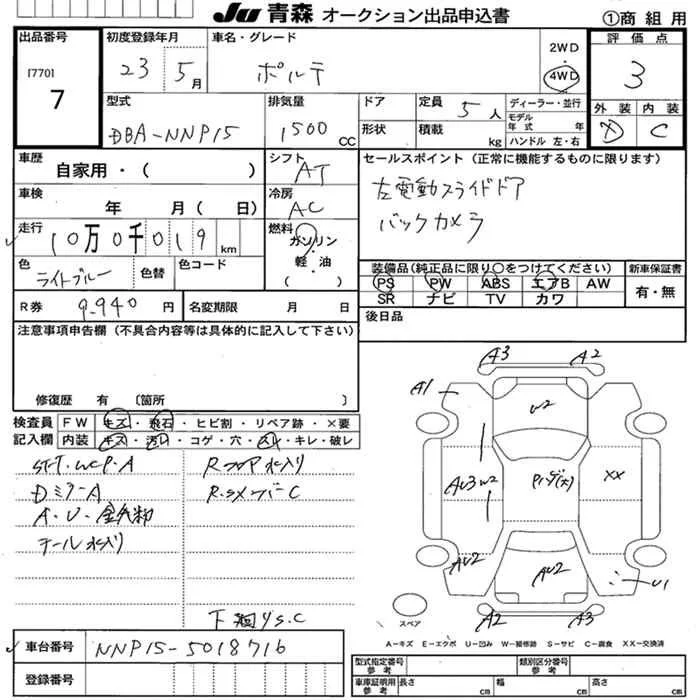 Ju 青森 オークション出品申込書
①商 組 用
出品番号
[770]
7
初度登録年月
23 5月
車名・グレード
ポルテ
2WD
4WD
評価点
3
外装 内装
D C
型式
DBA-NNP15
排気量
1500 CC
ドア
形状
定員 5人
積載 kg
ディーラー・並行
モデル年式 年
ハンドル 左・右
車歴
自家用・( )
シフト
AT
セールスポイント (正常に機能するものに限ります)
左電動スライドドア
バックカメラ
車検
年 月( 日)
冷房
AC
走行
10万0千019 km
燃料
ガソリン
軽・油
( )
色
ライトブルー
色替
色コード
装備品(純正品に限り○をつけてください)
新車保証書
PS PW ABS エアB AW
SR ナビ TV カワ
有・無
R券
9.940 円
名変期限 月 日
後日品
注意事項申告欄 (不具合内容等は具体的に記入して下さい)
修復歴 有 〔箇所 〕
検査員
記入欄
FW キズ・飛石・ヒビ割・リペア跡・×要
内装 キズ・汚レ・コゲ・穴・スレ・キレ・破レ
DミラーA
A・U・
テール水入り
R
C
下 S.C
A3 A2
A1
U2
AU3 W2
XX
AU2
AU2
U1
A2 A3
スペア
A-キズ E-エクボ U-凹み W-補修跡 S-サビ C-腐食 XX-交換済
車台番号
NNP15-5018716
登録番号
型式指定番号
参考
類別区分番号
参考
車庫証明用
参考
長さ cm 幅 cm 高さ cm